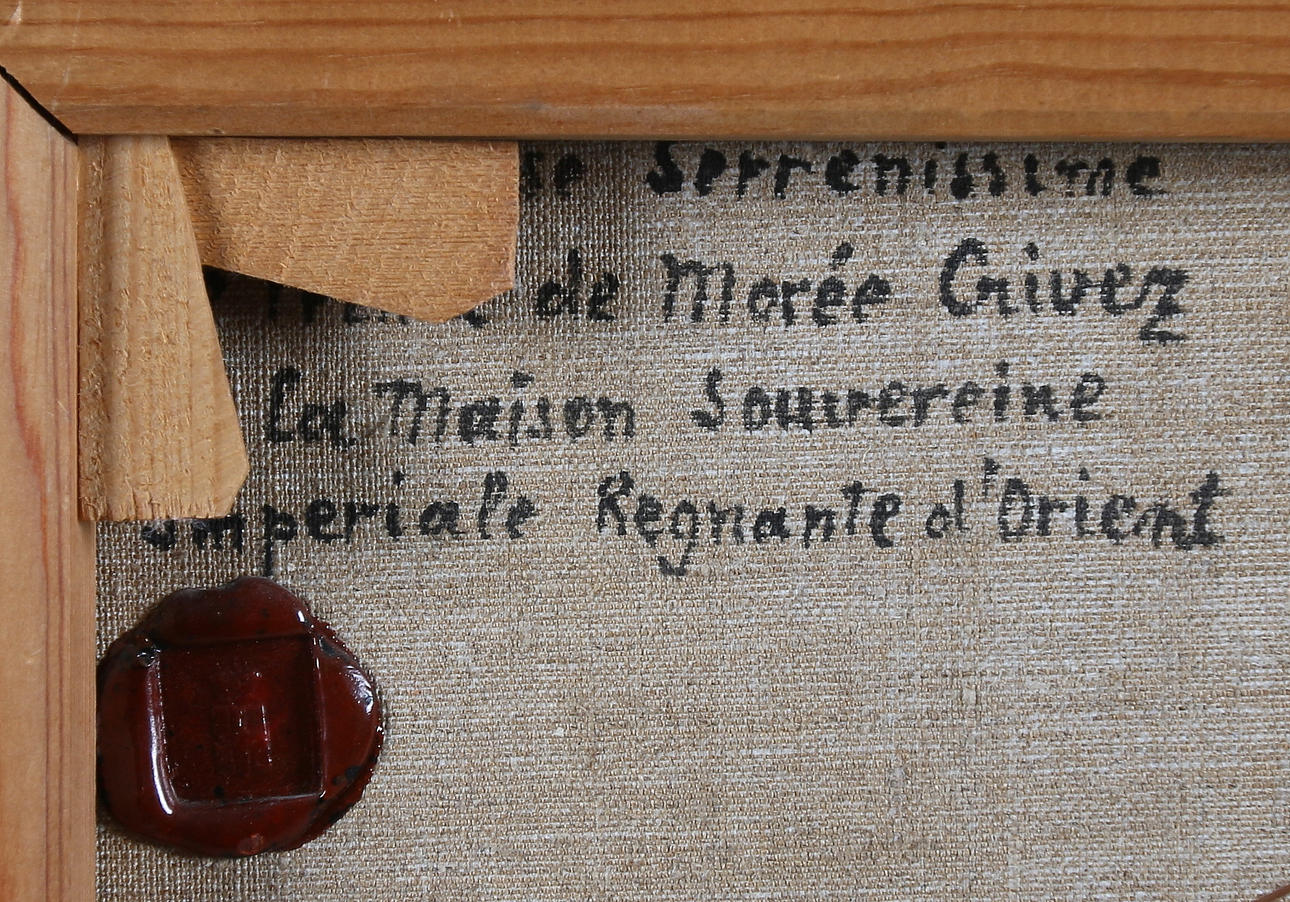 Serrenissime
de Morée Crivez
La Maison Souvereine
Imperiale Regnante d'Orient